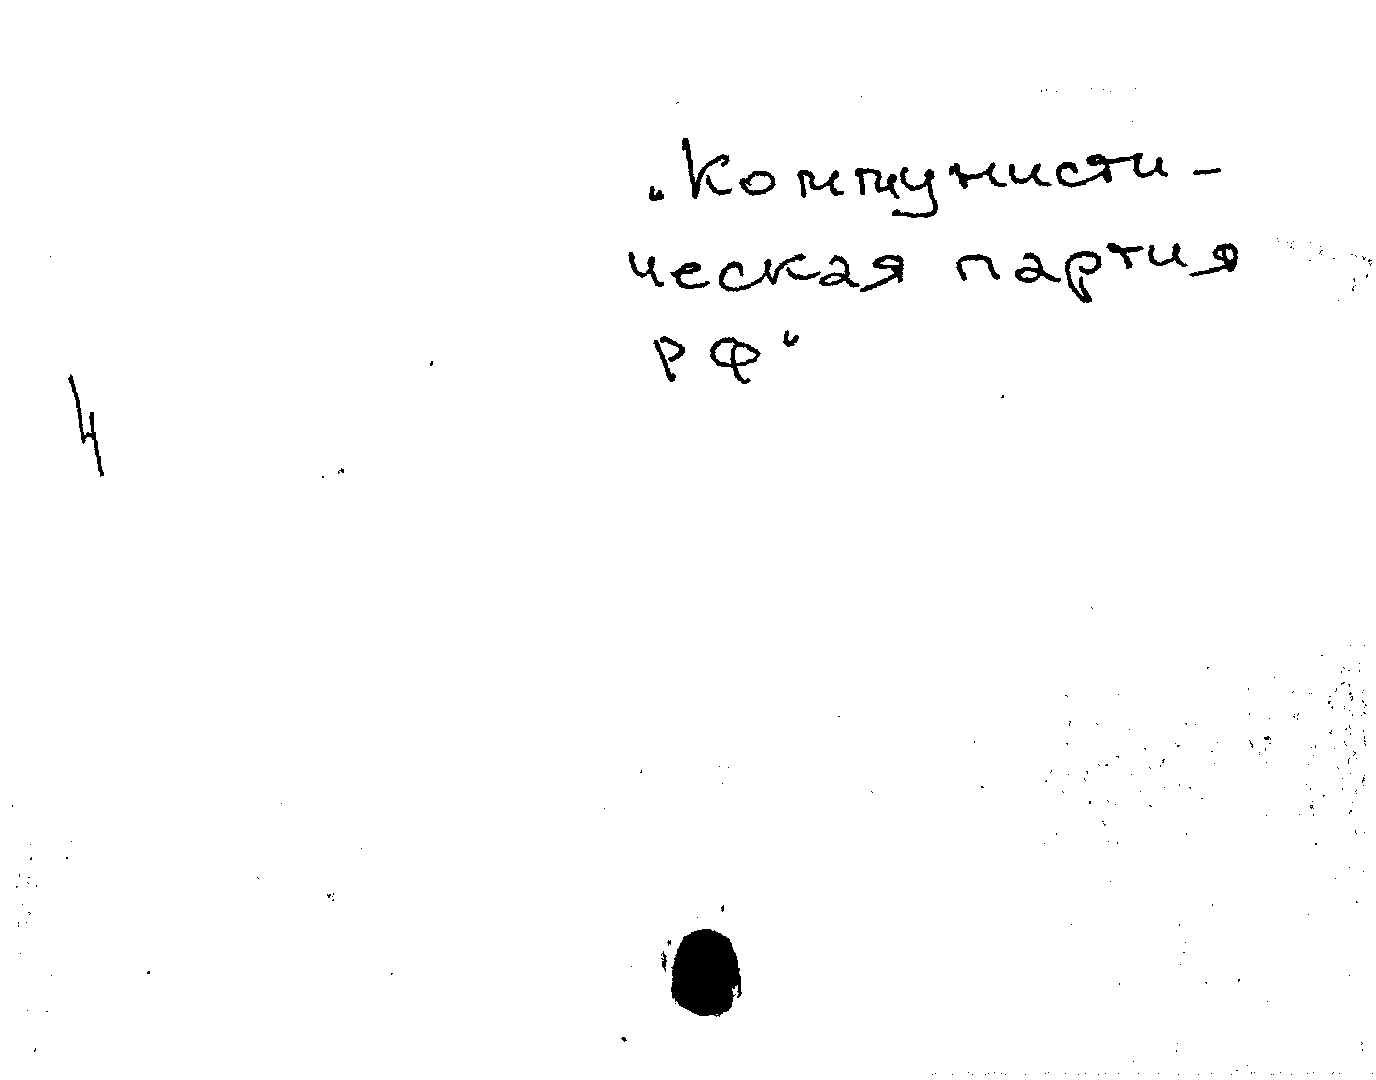 „Коммунисти-
ческая партия
РФ“
4